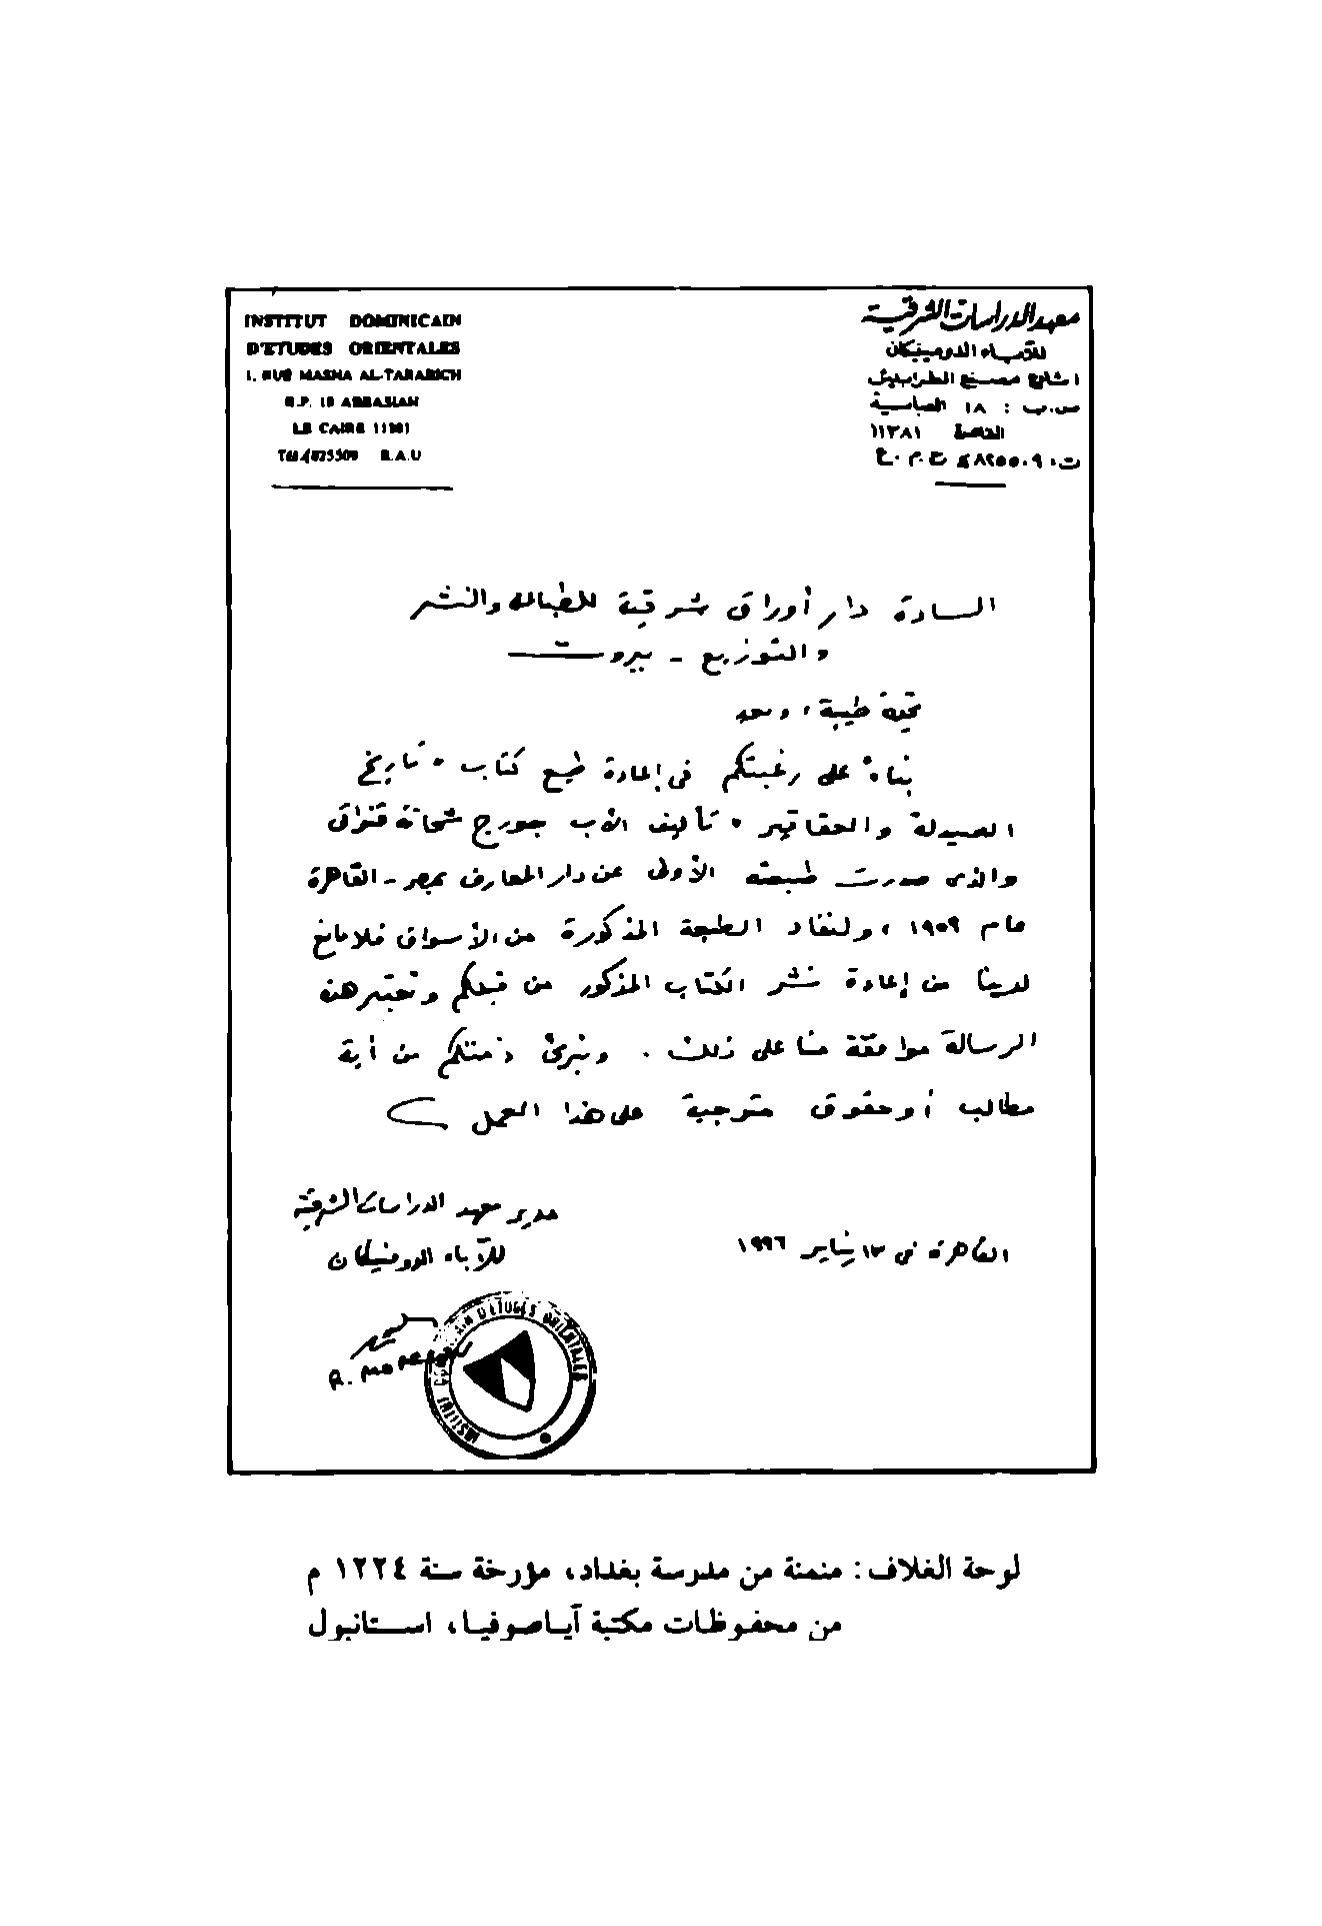 INSTITUT DOMINICAIN
D'ETUDES ORIENTALES
1. RUE MASNA AL-TARABICH
B.P. 18 ABBASIAH
LE CAIRE 11381
Tél. 4825509 R.A.U
معهد الدراسات الشرقية
للآباء الدومينيكان
١ شارع مصنع الطرابيش
ص.ب : ١٨ العباسية
القاهرة ١١٣٨١
ت. ٤٨٢٥٥٠٩ ج.م.ع.
السادة دار أوراق شرقية للطباعة والنشر
والتوزيع - بيروت
تحية طيبة ، وبعد
بناءً على رغبتكم في إعادة طبع كتاب " تاريخ
الصيدلة والعقاقير " تأليف الأب جورج شحاتة قنواتي
والذي صدرت طبعته الأولى عن دار المعارف بمصر - القاهرة
عام ١٩٥٩ ، ولنفاد الطبعة المذكورة من الأسواق فلا مانع
لدينا من إعادة نشر الكتاب المذكور من قبلكم وتعتبر هذه
الرسالة موافقة منا على ذلك . ونبرئ ذمتكم من أية
مطالب أو حقوق متوجبة على هذا العمل
مدير معهد الدراسات الشرقية
للآباء الدومنيكان
القاهرة في ١٣ يناير ١٩٩٦
R. MORELON
INSTITUT DOMINICAIN D'ETUDES ORIENTALES
لوحة الغلاف: منمنة من مدرسة بغداد، مؤرخة سنة ١٢٢٤ م
من محفوظات مكتبة آياصوفيا، استانبول